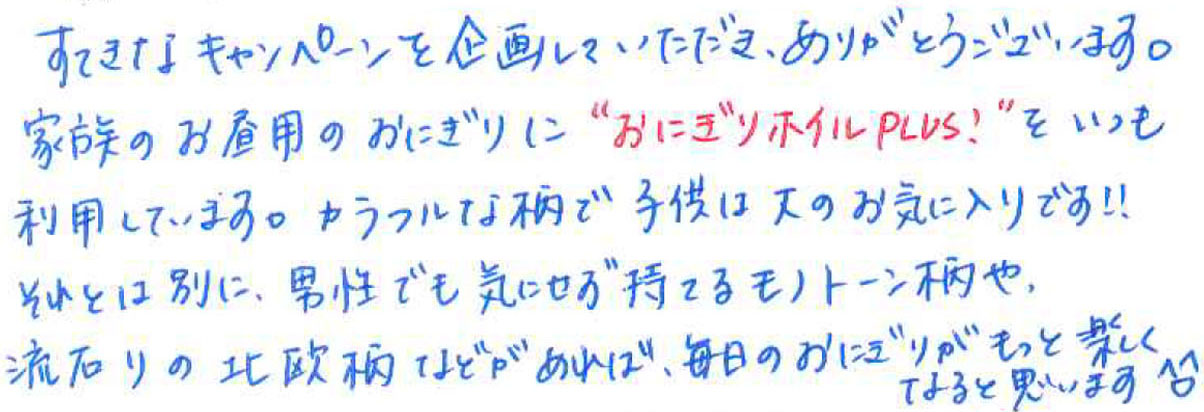 すてきなキャンペーンを企画していただき、ありがとうございます。
家族のお昼用のおにぎりに“おにぎりホイルPLUS!”をいつも
利用しています。カラフルな柄で子供は大のお気に入りです!!
それとは別に、男性でも気にせず持てるモノトーン柄や、
流石りの北欧柄などがあれば、毎日のおにぎりがもっと楽しく
なると思います